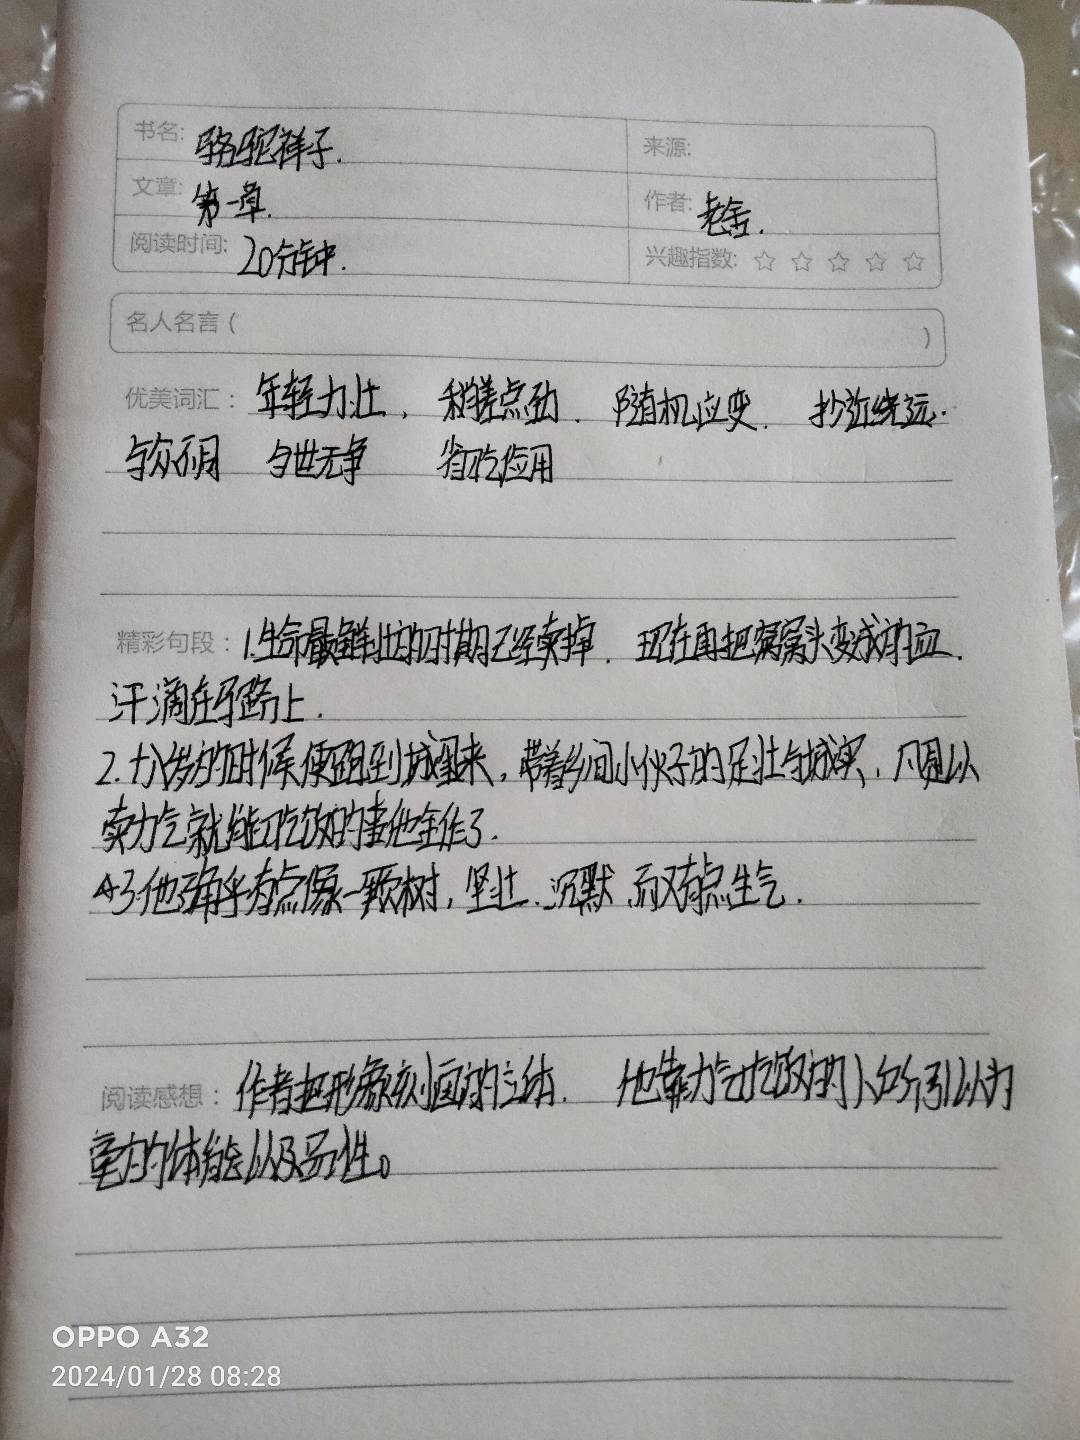 书名: 骆驼祥子.
来源:
文章: 第一章.
作者: 老舍.
阅读时间: 20分钟.
兴趣指数: ☆ ☆ ☆ ☆ ☆
名人名言 ( )
优美词汇: 年轻力壮, 稍差点劲. 随机应变. 抄近绕远.
与众不同 与世无争 省吃俭用
精彩句段: 1.生命最鲜壮的时期已经卖掉. 现在再把窝窝头变成的血.
汗滴在马路上.
2.十八岁的时候便跑到城里来, 带着乡间小伙子的足壮与诚实, 凡是以
卖力气就能吃饭的事他全作了.
3.他确乎有点像一颗树, 坚壮.沉默.而又有点生气.
阅读感想: 作者把形象刻画的立体. 他靠力气吃饭的人的引以为
的体能以及另性。
OPPO A32
2024/01/28 08:28